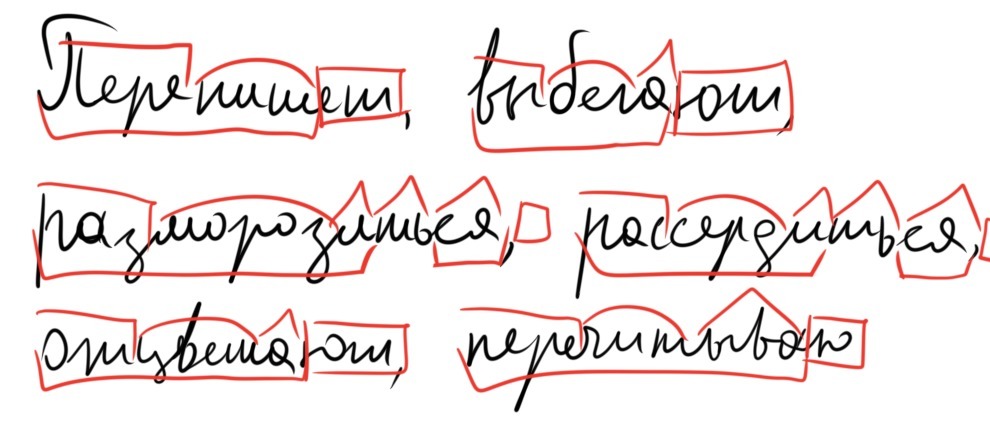 Перепишет, выбегают,
разморозиться, рассердиться,
отцветают, перечитываю